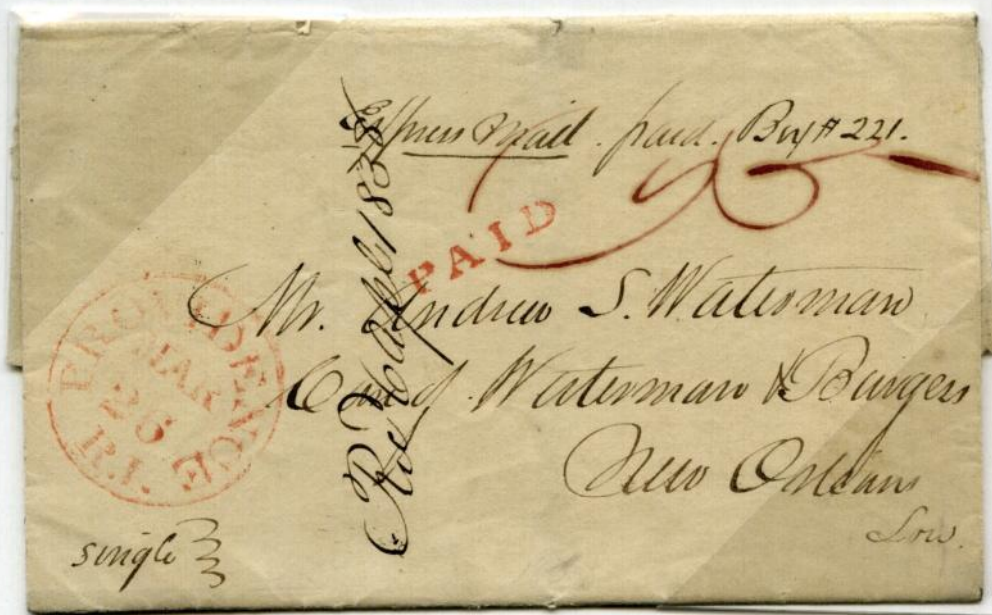 Express Mail. paid. Box # 221.
PAID
Mr. Andrew S. Waterman
Care of. Waterman & Burges
New Orleans
Lou.
PROVIDENCE R.I.
MAR
26
single
1838